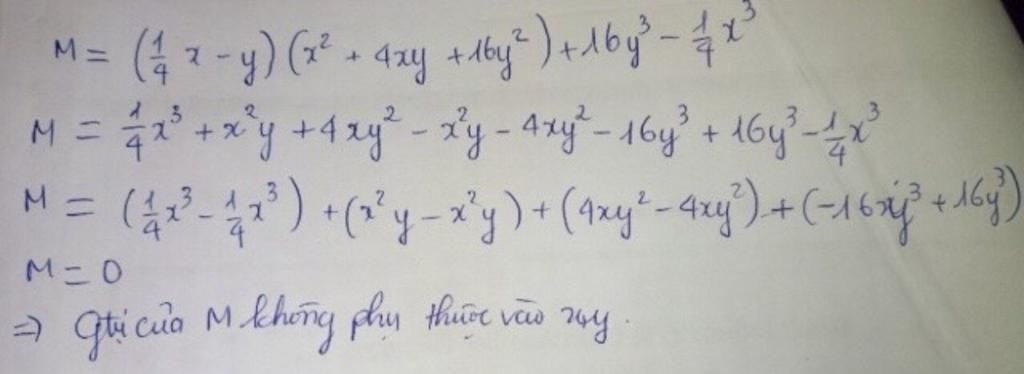 M = (1/4 x - y)(x² + 4xy + 16y²) + 16y³ - 1/4 x³
M = 1/4 x³ + x²y + 4xy² - x²y - 4xy² - 16y³ + 16y³ - 1/4 x³
M = (1/4 x³ - 1/4 x³) + (x²y - x²y) + (4xy² - 4xy²) + (-16xy³ + 16y³)
M = 0
=> Gtrị của M không phụ thuộc vào x, y.